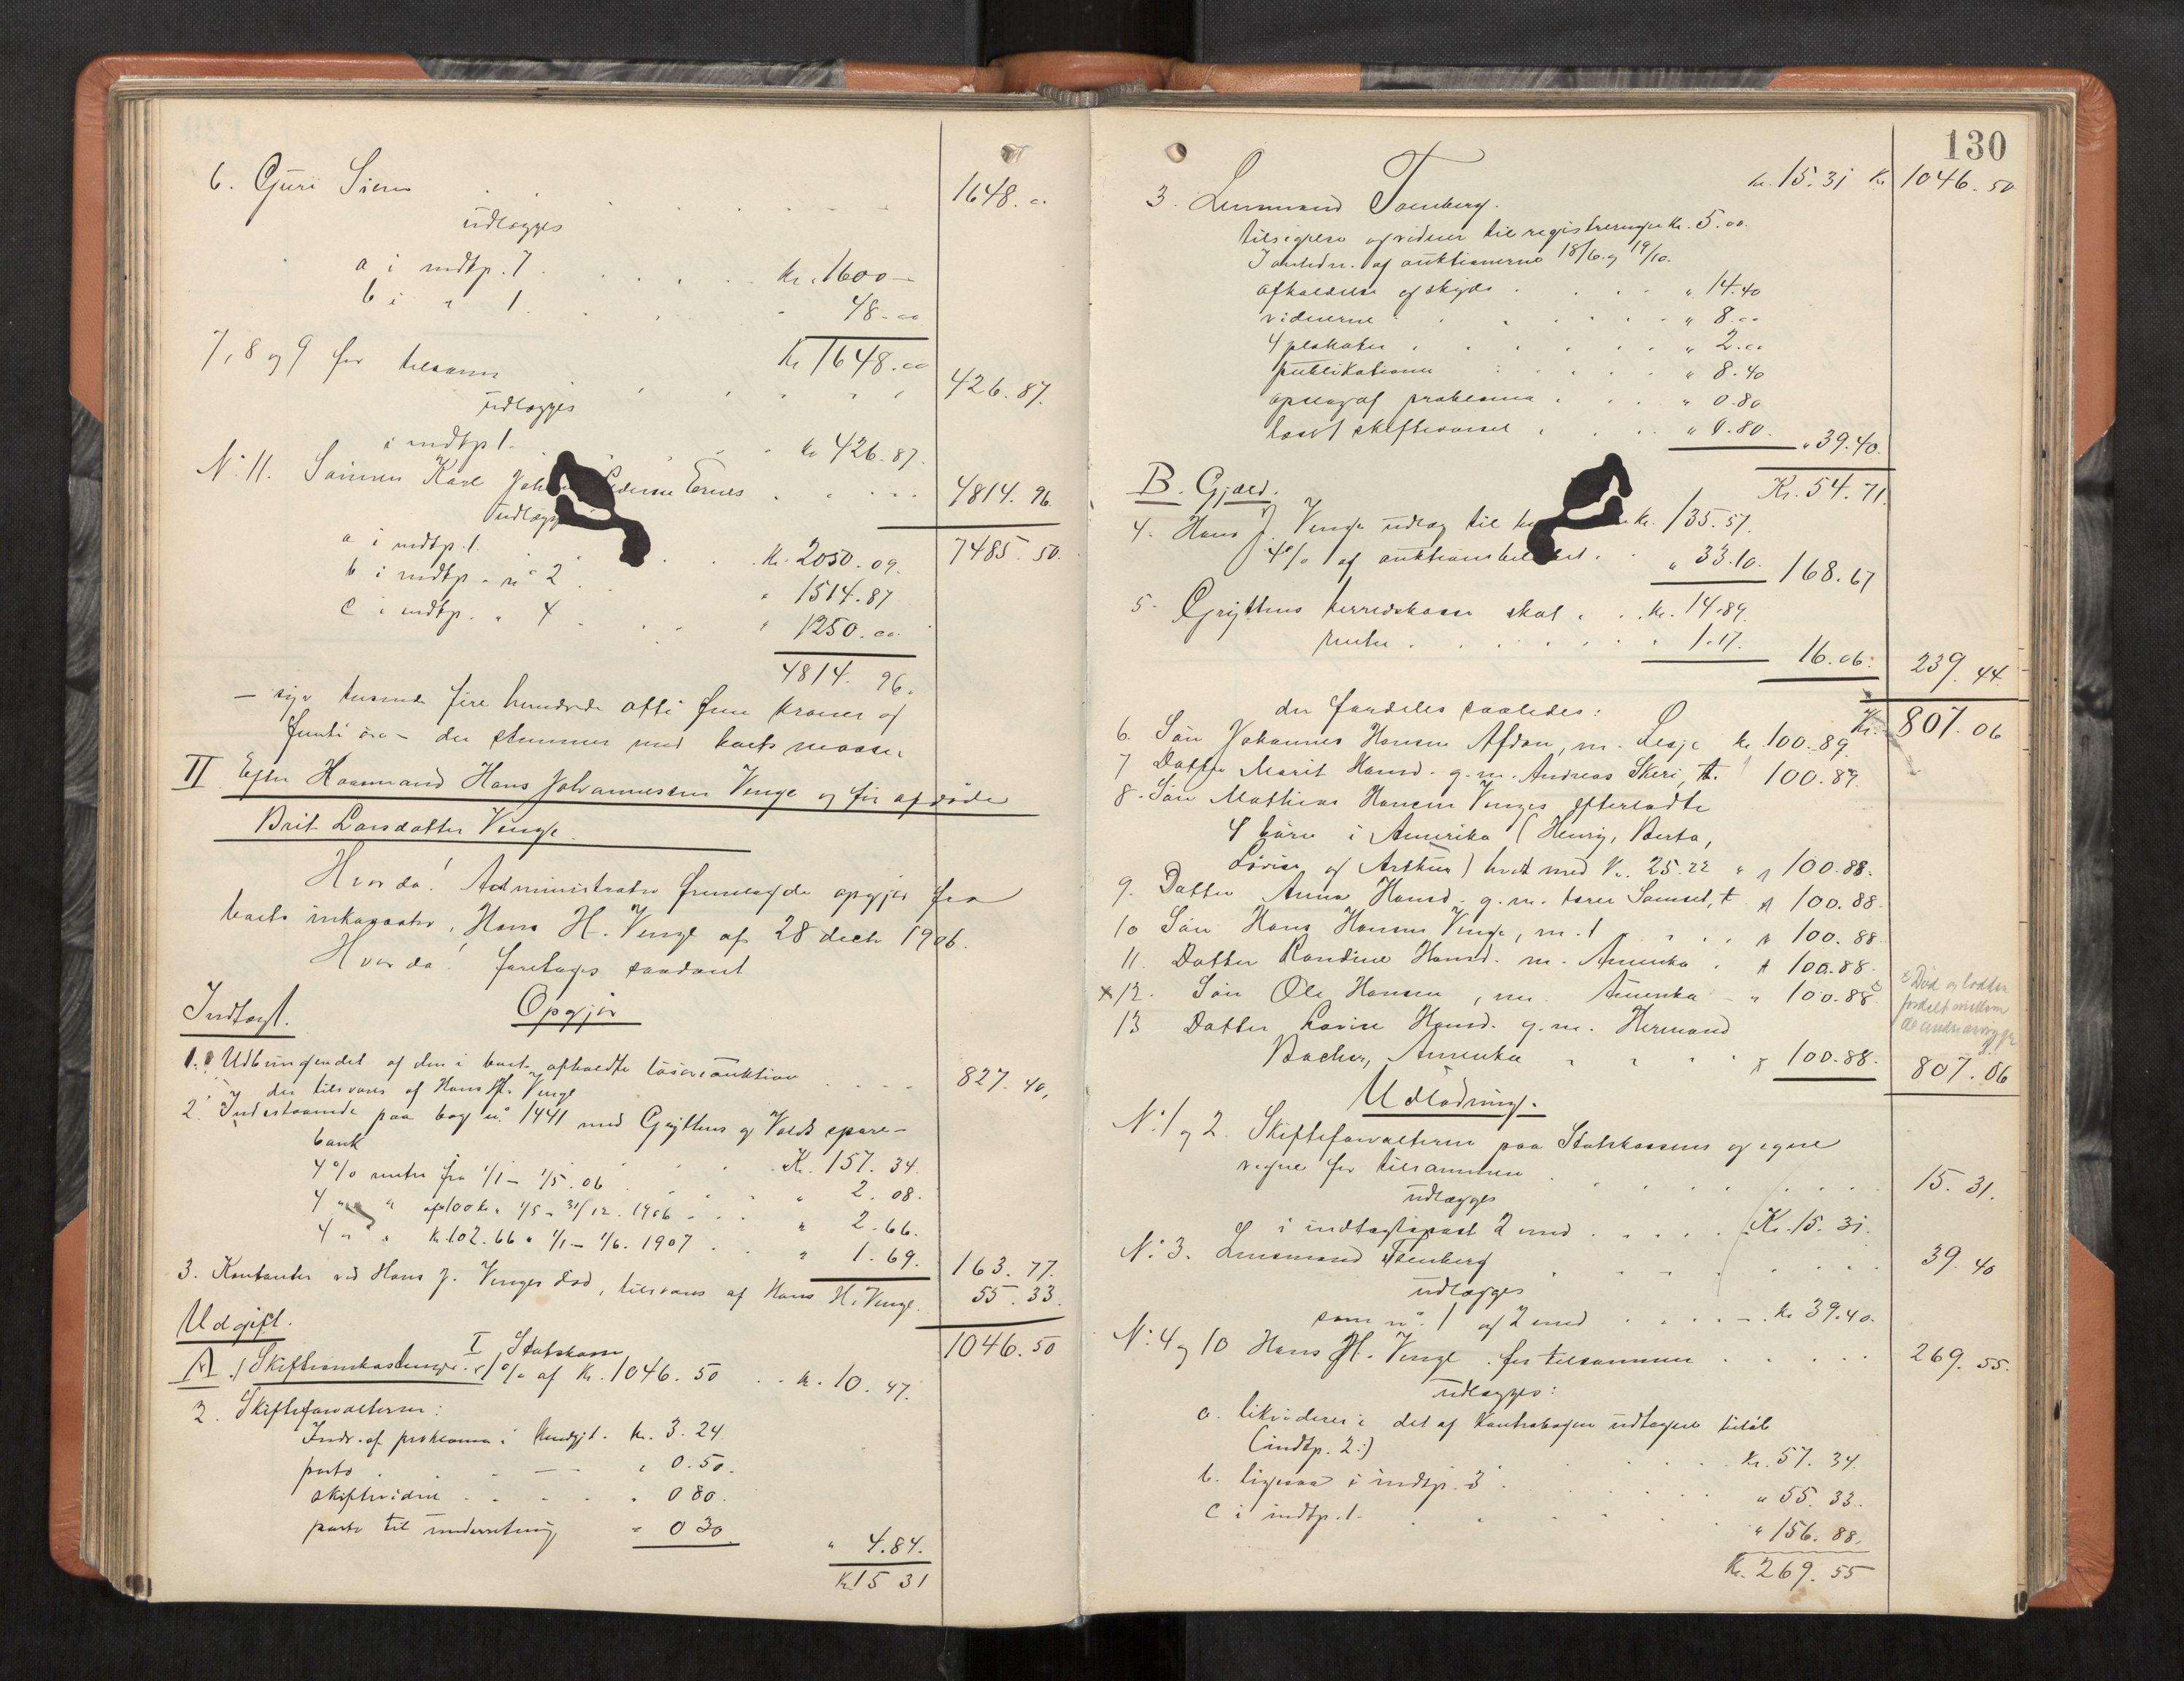 6. Guri Siem . . . . . 1648.00
udlægges
a i indtp. 7 . . . kr. 1600 —
b i " 1 . . . 48.00
Kr 1648.00
7, 8 og 9 for tilsammen . . . . 426.87.
udlægges
i indtp 1. . . . kr 426.87.
No 11. Sönnen Karl . . . . 4814.96
udlægges
7485.50
a i indtp. 1. . . . Kr. 2050.09.
b i indtp. no 2 . . . " 1514.87
c i indtp. " 4 . . . " 1250.00
4814.96.
— syv tusende fire hundrede otti fem kroner og
femti öre — der stemmer med boets masse.
II Efter Kaarmand Hans Johannessen Venge og för afdöde
Brit Larsdatter Venge.
Hvorda! Administrator fremlagde opgjör fra
boets inkassator, Hans H. Venge af 28 decb 1906.
Hvorda! foretages saadant
Opgjör
Indtægt.
1. Udbringendet af den i boet afholdte lösöreauktion . . . . 827.40,
der tilsvares af Hans H. Venge
2. Indestaaende paa bog no. 1441 med Gryttens og Volds spare-
bank . . . Kr. 157.34.
4 % renter fra 1/1 — 1/5.06 . . . " 2.08.
4 " " af 100 kr. " 1/5 — 31/12. 1906 . . . " 2.66.
4 " " Kr. 102.66 " 1/1 — 1/6. 1907 . . . " 1.69. 163.77.
3. Kontanter ved Hans J. Venges död, tilsvares af Hans H. Venge. 55.33.
1046.50
Udgift.
I Statskassen
A. Skifteomkostninger. 1 % af Kr. 1046.50 . . kr. 10.47.
2. Skifteforvalteren:
Indr. af proklama i Kundgjt. kr. 3.24
porto . — " 0.50.
skiftevidne . . . . " 0 80.
porto til underretning " 0 30
" 4.84.
Kr. 15 31
130
kr. 15.31 Kr 1046.50
3. Lensmand Toenberg.
tilsigelse og vidner til registreringen Kr. 5.00.
I anledn. af auktionerne 18/6 og 19/10.
afholdelse og skyds . . . " 14.40
vidnerne . . . . " 8.00
4 plakater . . . . " 2.00
publikationer . . . " 8.40
opslag af proklama . . . " 0.80
skiftevarsel . . . " 0.80. " 39.40.
Kr. 54.71
B. Gjæld.
4. Hans J. Venge udlæg til kr. 135.57.
4 % af auktionsbelöbet . . " 33.10. 168.67
5. Gryttens herredskasse skat . . kr. 14.89.
renter . . . . . . " 1.17. 16.06. 239.44.
Kr. 807.06
der fordeles saaledes:
6. Sön Johannes Hansen Afdon, m. Lesje kr. 100.89.
7 Datter Marit Hansd. g. m. Andreas Skeri, †. " 100.89.
8. Sön Mathias Hansen Venges efterladte
4 börn i Amerika (Henry, Berta,
Lovise og Arthur) hvert med Kr. 25.22 " 100.88.
9. Datter Anna Hansd. g. m. Samset, † " 100.88.
10 Sön Hans Hansen Venge, m. ! . . . " 100.88
11. Datter Randine Hansd. m. Amerika . " 100.88.
x 12. Sön Ole Hansen, m. Amerika — " 100.88 x
x Död og lodden
fordelt mellem
de andre arvinger
13 Datter Lovise Hansd. g. m. Hermand
Bacher, Amerika . . . . " 100.88. 807.06
Udlodning.
No. 1 og 2. Skifteforvalteren paa Statskassens og egne
vegne for tilsammen . . . . . . . 15.31.
udlægges
i indtægtspost 2 med . . . . Kr. 15.31.
No. 3. Lensmand Toenberg . . . . . . 39.40
udlægges
som no. 1 og 2 med . . . . — kr 39.40.
No. 4 og 10 Hans H. Venge for tilsammen . . . . 269.55.
udlægges:
a. likvideres i det af Kontrabogen udtagne belöb
(indtp. 2:) . . . . Kr. 57.34.
b. ligesaa i indtp. 3 . . . . . " 55.33.
c i indtp. 1. . . . . . " 156.88.
Kr. 269.55